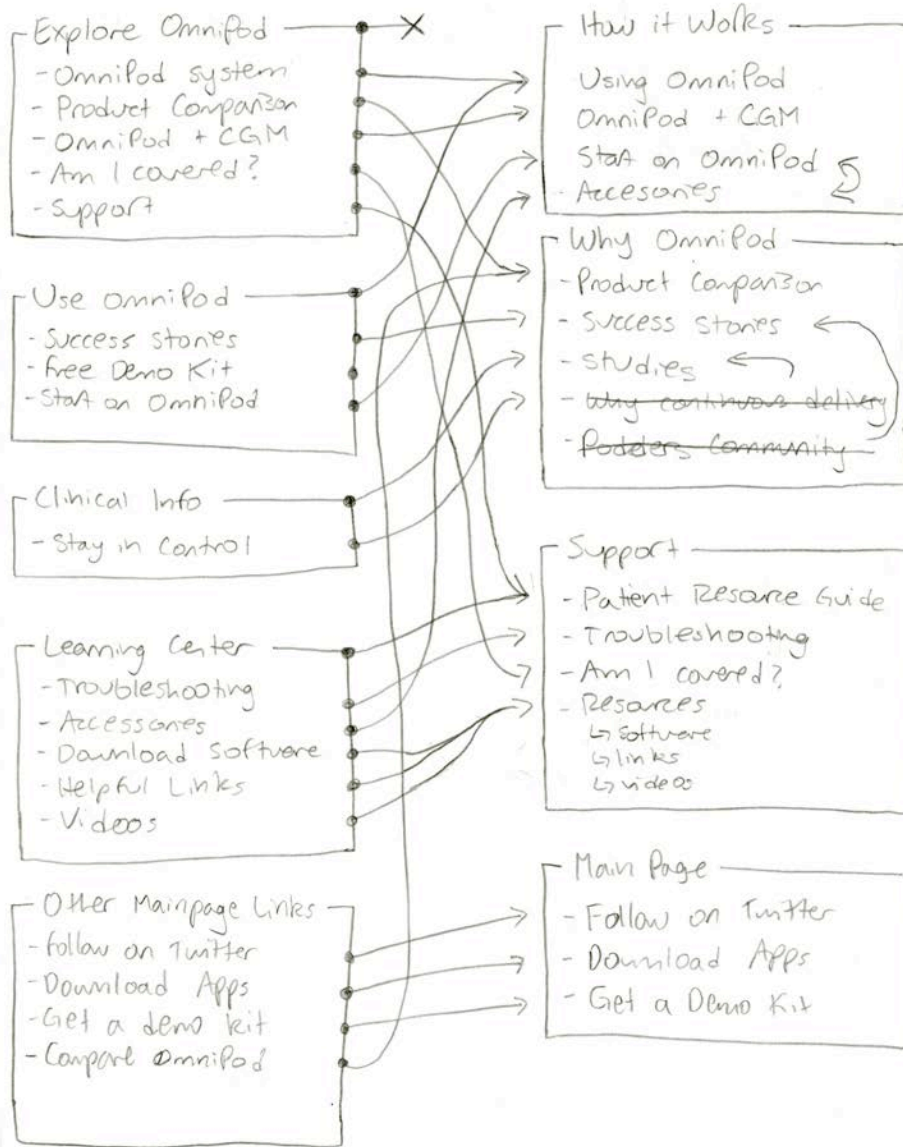 Explore OmniPod
- OmniPod system
- Product Comparison
- OmniPod + CGM
- Am I covered?
- Support
Use OmniPod
- Success Stories
- Free Demo Kit
- Start on OmniPod
Clinical Info
- Stay in Control
Learning Center
- Troubleshooting
- Accessories
- Download Software
- Helpful Links
- Videos
Other Mainpage Links
- Follow on Twitter
- Download Apps
- Get a demo kit
- Compare OmniPod
How it Works
Using OmniPod
OmniPod + CGM
Start on OmniPod
- Accesories
Why OmniPod
- Product Comparison
- Success Stories
- Studies
- Why continuous delivery
- Podders Community
Support
- Patient Resource Guide
- Troubleshooting
- Am I covered?
- Resources
↳ Software
↳ links
↳ videos
Main Page
- Follow on Twitter
- Download Apps
- Get a Demo Kit